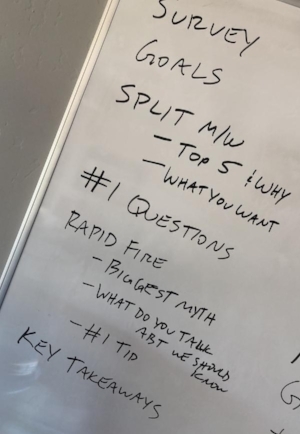 SURVEY
GOALS
SPLIT M/W
- TOP 5 & WHY
- WHAT YOU WANT
#1 QUESTIONS
RAPID FIRE
- BIGGEST MYTH
- WHAT DO YOU TALK
ABT WE SHOULD
KNOW
- #1 TIP
KEY TAKEAWAYS